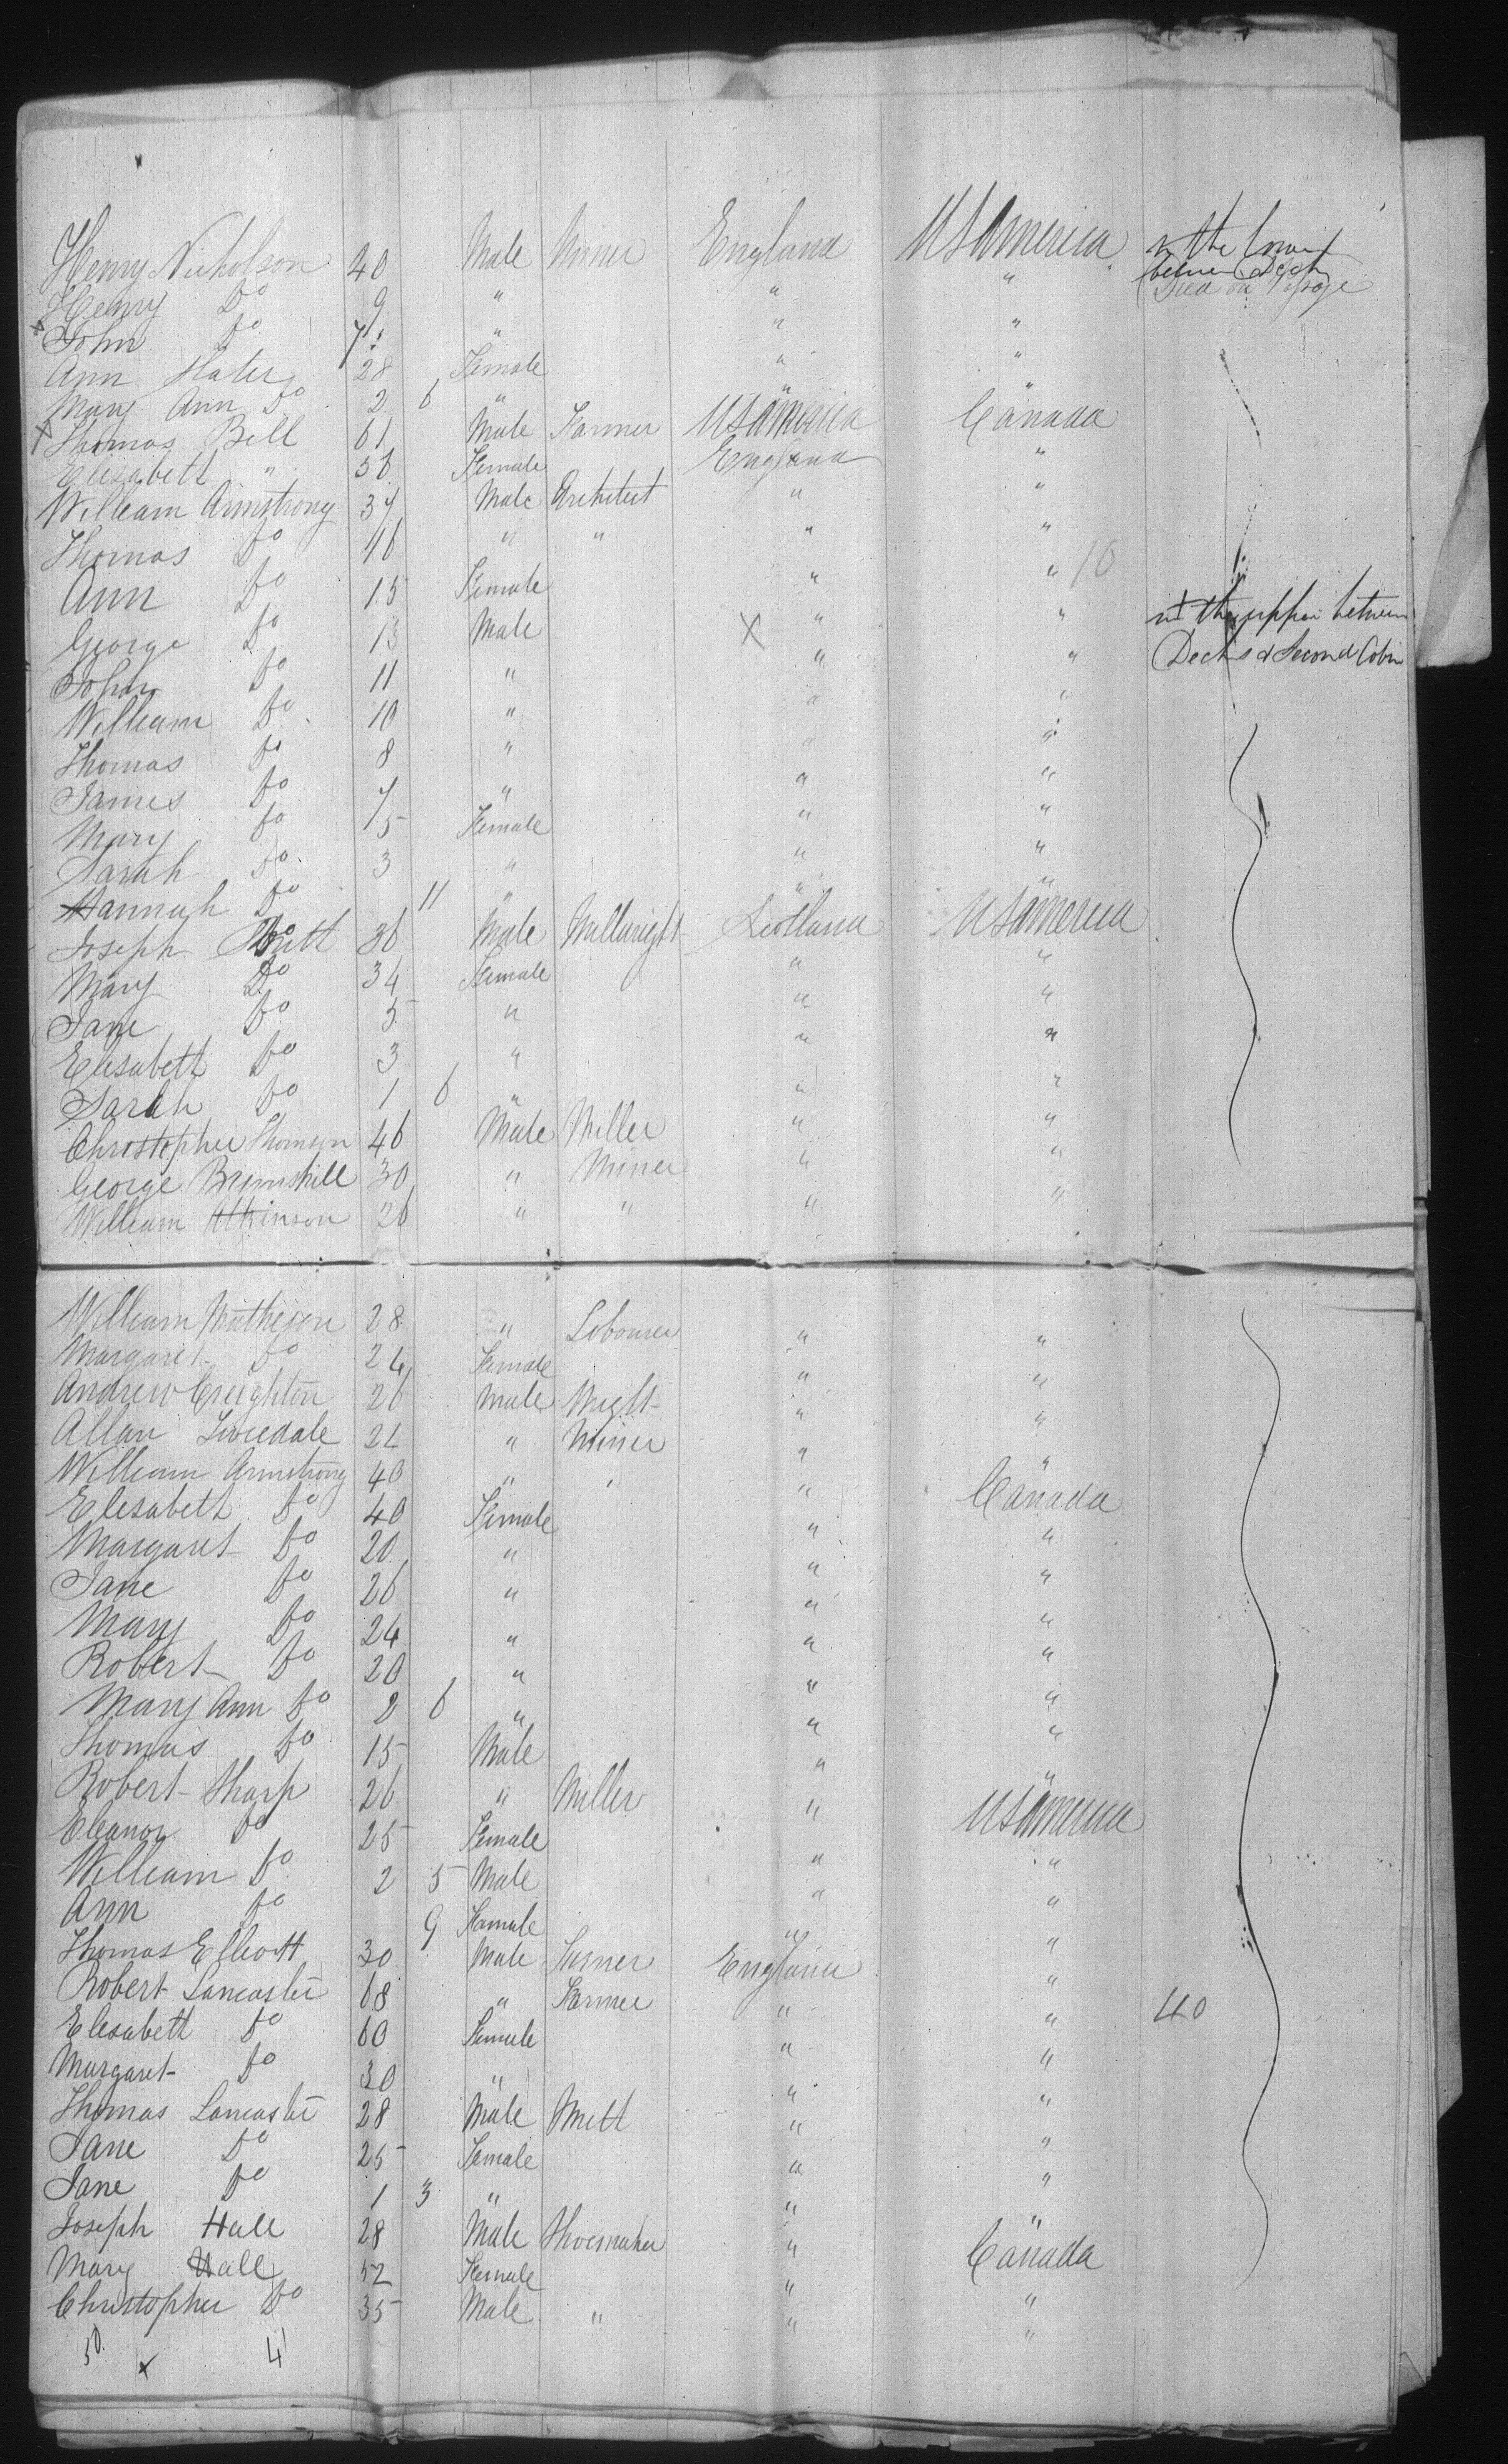 Henry Nicholson 40 Male Miner England USAmerica in the lower between Decks
Henry Do 9 " " " Died on Passage
x John Do 7 " " "
Ann Slater 28 Female " "
Mary Ann Do 2 6 " " "
x Thomas Bell 61 Male Farmer USAmerica Canada
Elizabett " 56 Female England "
William Armstrong 37 Male Architect " "
Thomas Do 16 " " " "
Ann Do 15 Female " " 10
George Do 13 Male x " " in the upper between
John Do 11 " " " Decks & Second Cabin
William Do 10 " " "
Thomas Do 8 " " "
James Do 7 " " "
Mary Do 5 Female " "
Sarah Do 3 " " "
Hannah Do 11 " " "
Joseph Do 36 Male Millwright Scotland USAmerica
Mary Do 34 Female " "
Jane Do 5 " " "
Elisabett Do 3 " " "
Sarah Do 1 6 " " "
Christopher Thomson 46 Male Miller " "
George Brumskill 30 " Miner " "
William Atkinson 26 " " " "
William Matheson 28 " Labourer " "
Margaret Do 24 Female " "
Andrew Creighton 26 Male " "
Allan Tweedale 21 " Miner " "
William Armstrong 40 " " " Canada
Elesabeth Do 40 Female " "
Margaret Do 20 " " "
Jane Do 26 " " "
Mary Do 24 " " "
Robert Do 20 " " "
Mary Ann Do 2 6 " " "
Thomas Do 15 Male " "
Robert Sharp 26 " Miller " USAmerica
Eleanor Do 25 Female " "
William Do 2 5 Male " "
Ann Do 9 Female " "
Thomas Elliott 30 Male Turner England "
Robert Lancaster 68 " Farmer " " 40
Elesabett Do 60 Female " "
Margaret Do 30 " " "
Thomas Lancaster 28 Male " "
Jane Do 25 Female " "
Jane Do 1 3 " " "
Joseph Hall 28 Male Shoemaker " Canada
Mary Hall 52 Female " "
Christopher Do 35 Male " " "
50 x 4